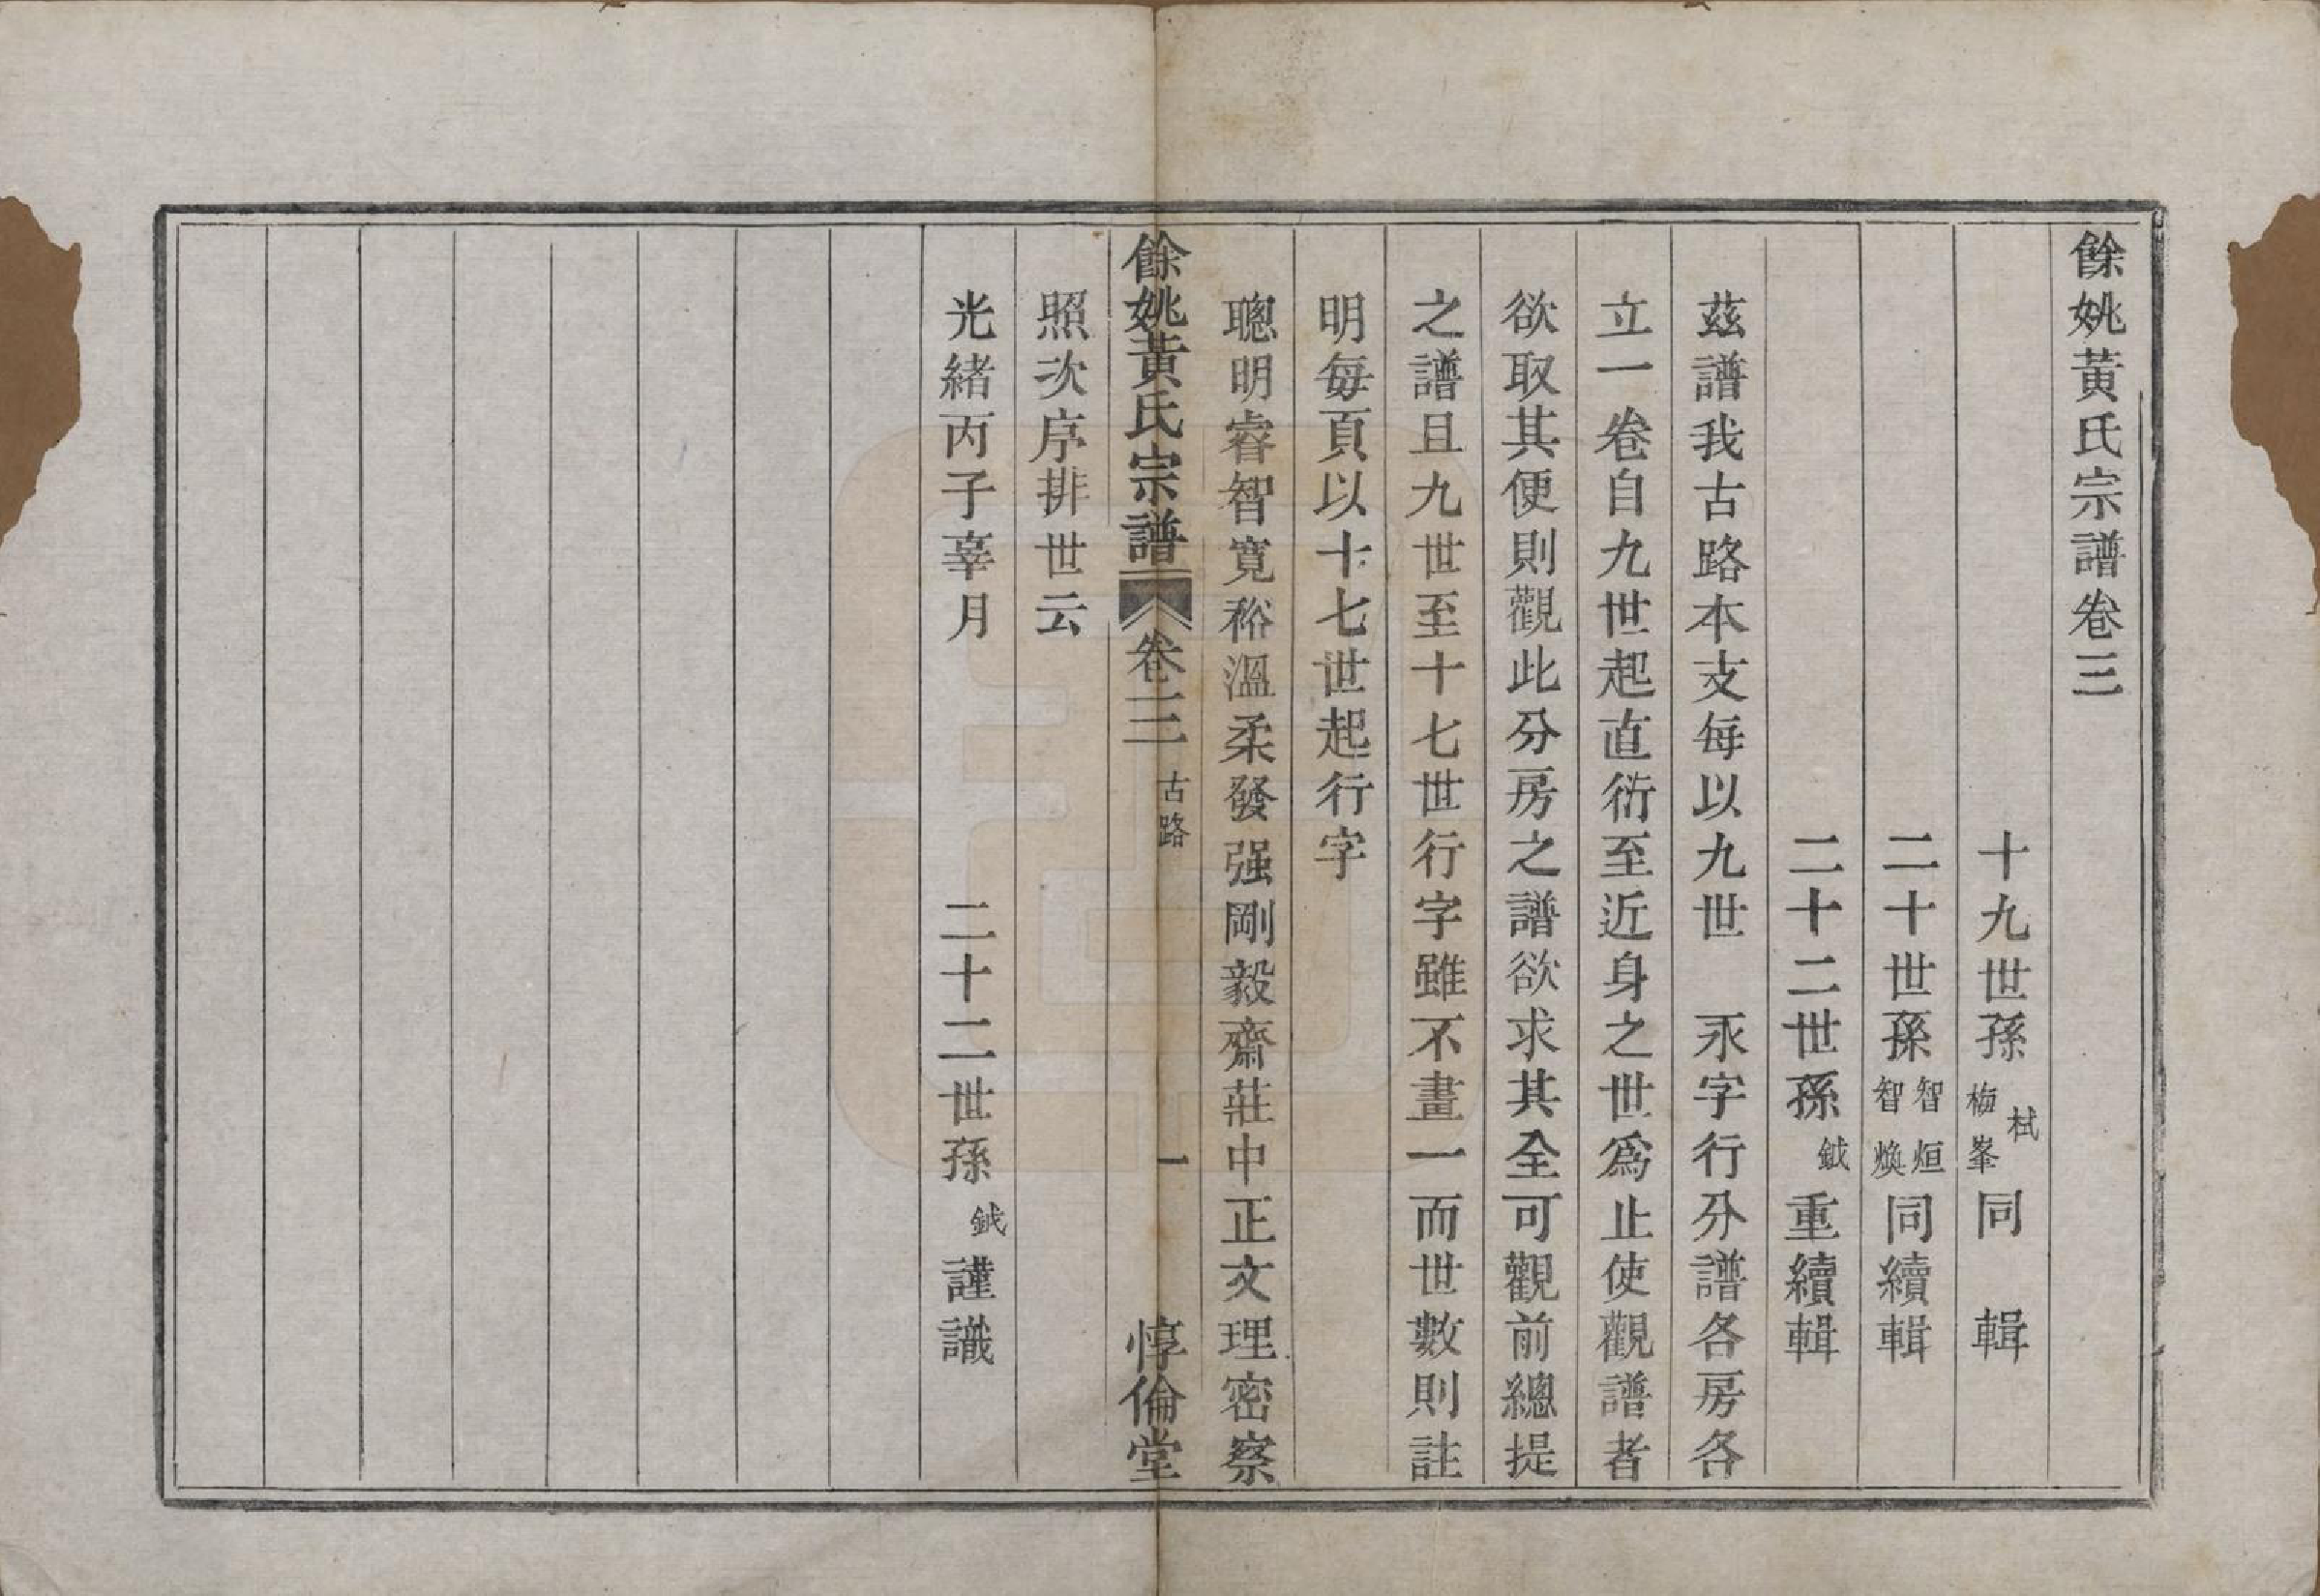 餘姚黃氏宗譜卷三
十九世孫 栻 梅峯 同 輯
二十世孫 智烜 智煥 同續輯
二十二世孫 鉞 重續輯
茲譜我古路本支每以九世 汞字行分譜各房各
立一卷自九世起直衍至近身之世爲止使觀譜者
欲取其便則觀此分房之譜欲求其全可觀前總提
之譜且九世至十七世行字雖不畫一而世數則註
明每頁以十七世起行字
聰明睿智寬裕溫柔發强剛毅齋莊中正文理密察
餘姚黃氏宗譜 卷三 古路 一 惇倫堂
照次序排世云
光緒丙子辜月 二十二世孫 鉞 謹識